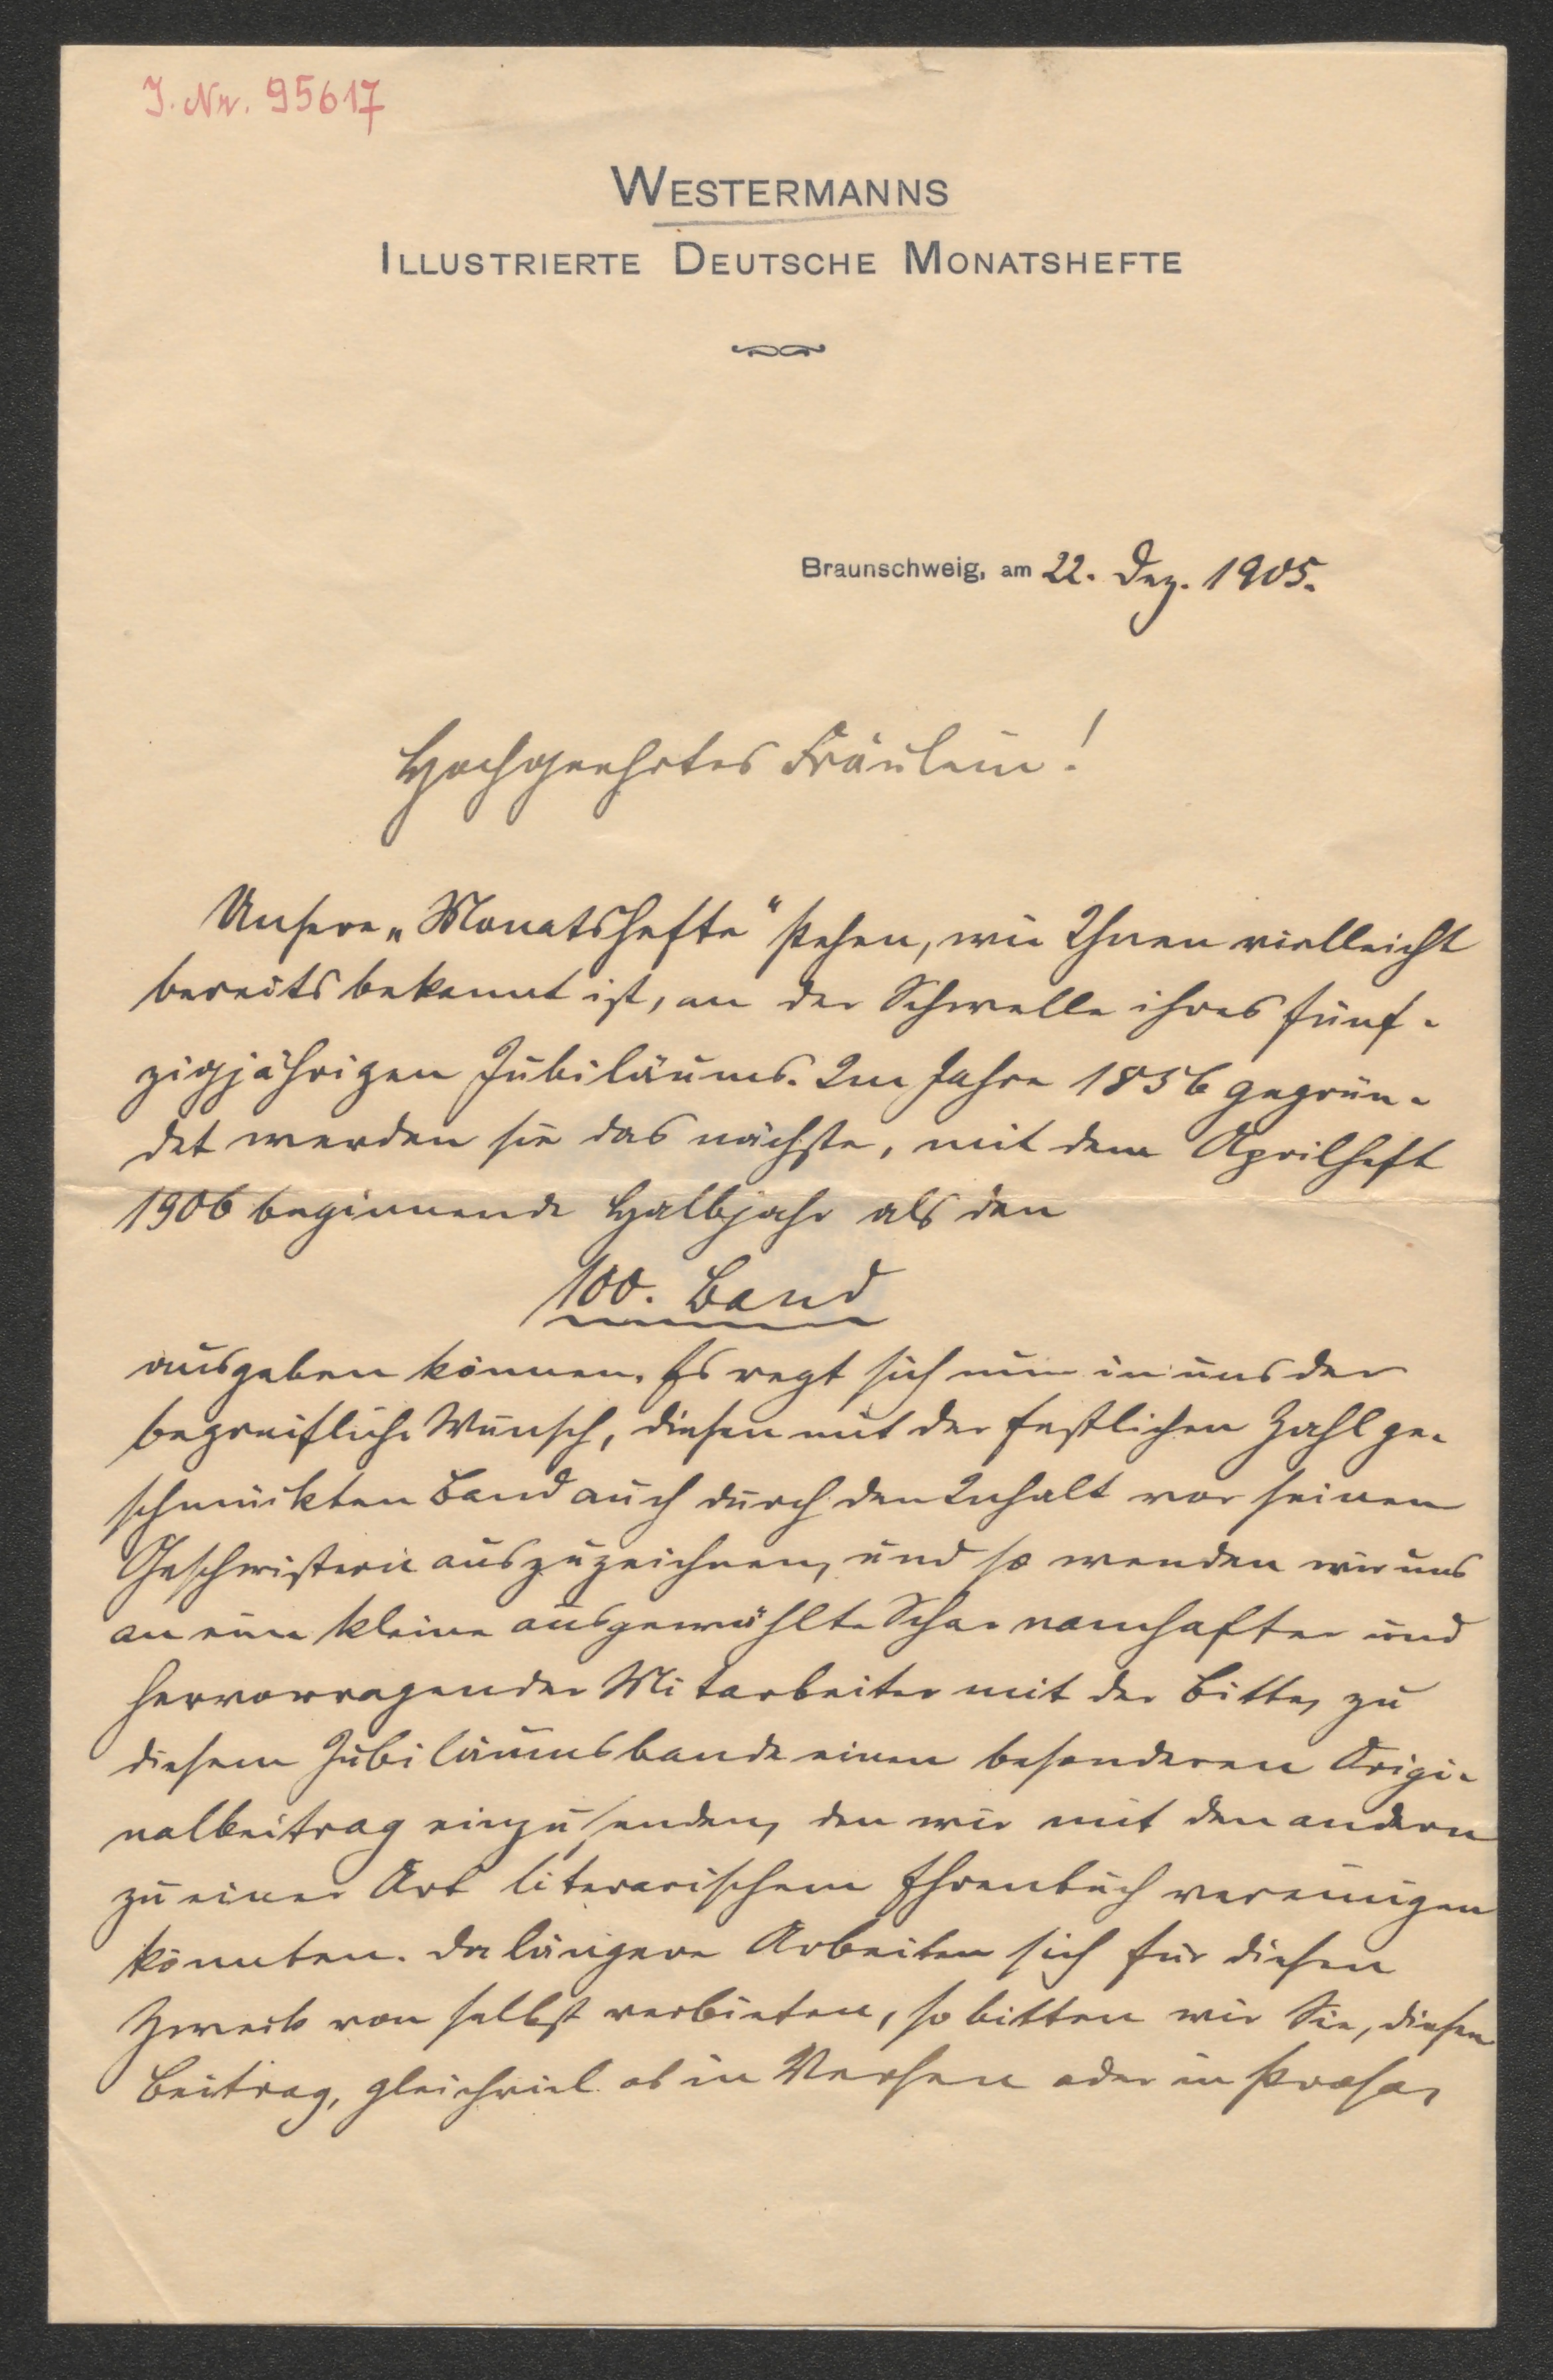 J. Nr. 95617
WESTERMANNS
ILLUSTRIERTE DEUTSCHE MONATSHEFTE
Braunschweig, am 22. Dez. 1905.
Hochgeehrtes Fräulein!
Unsere „Monatshefte“ stehen, wie Ihnen vielleicht
bereits bekannt ist, an der Schwelle ihres fünf-
zigjährigen Jubiläums. Im Jahre 1856 gegrün-
det werden sie das nächste, mit dem Aprilheft
1906 beginnende Halbjahr als den
100. Band
ausgeben können. Es regt sich nun in uns der
begreifliche Wunsch, diesen mit der festlichen Zahl ge-
schmückten Band auch durch den Inhalt vor seinen
Geschwistern auszuzeichnen, und so wenden wir uns
an eine kleine ausgewählte Schar namhafter und
hervorragender Mitarbeiter mit der Bitte, zu
diesem Jubiläumsbande einen besonderen Origi-
nalbeitrag einzusenden, den wir mit den andern
zu einer Art literarischem Ehrenbuch vereinigen
könnten. Da längere Arbeiten sich für diesen
Zweck von selbst verbieten, so bitten wir Sie, diesen
Beitrag, gleichviel ob in Versen oder in Prosa,